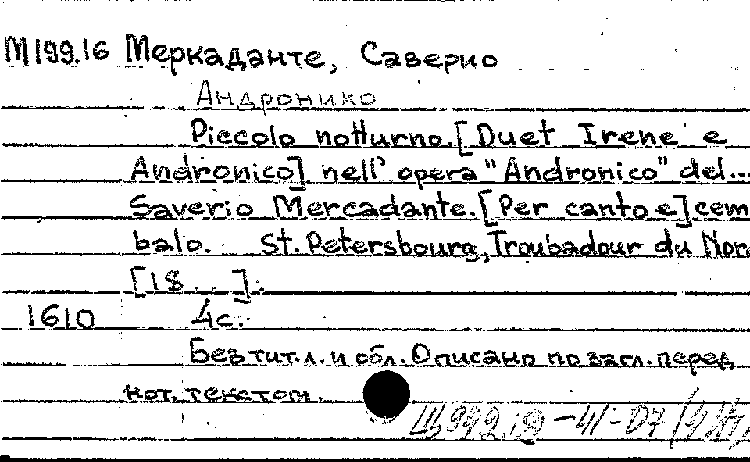 М199.16 Меркаданте, Саверио
Андронико
Piccolo notturno.[Duet Irene e
Andronico] nell' opera "Andronico" del...
Saverio Mercadante.[Per canto e]cem
balo. St.Petersbourg, Troubadour du Nord
[18 . . ].
1610 4с.
Без тит.л. и обл. Описано по загл. перед
нот. текстом.